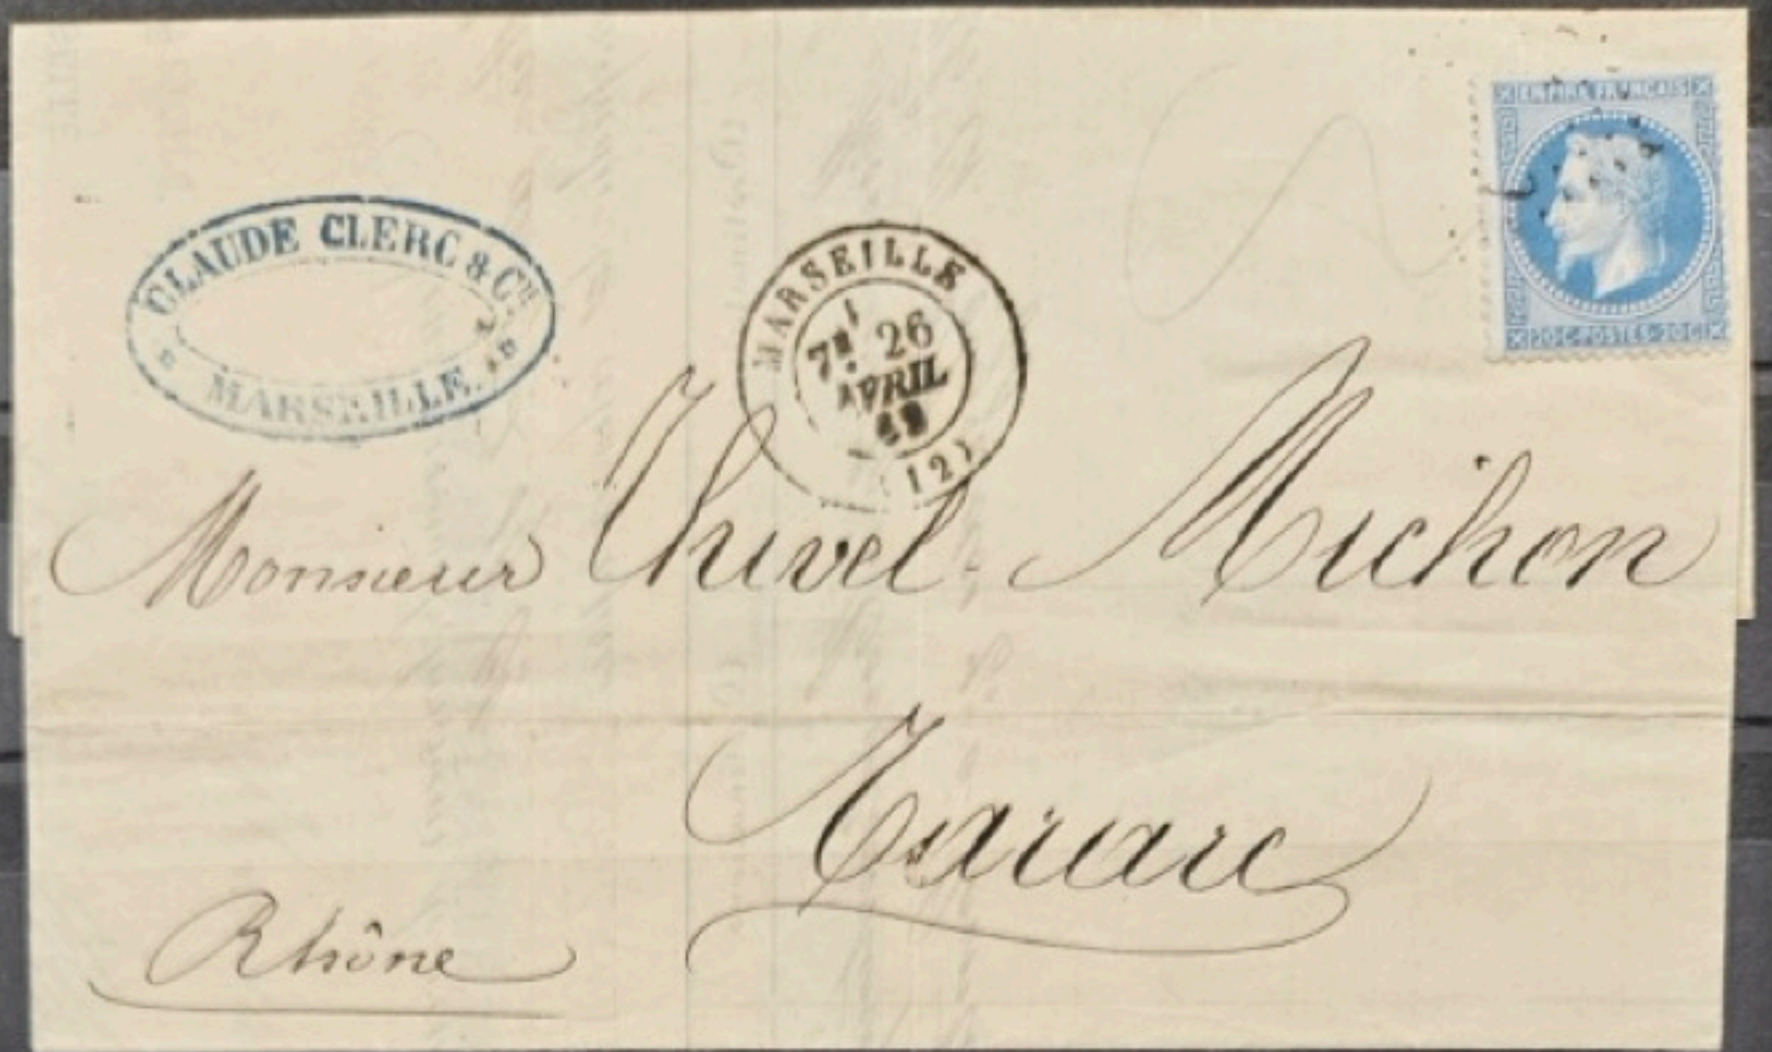 CLAUDE CLERC & CIE
MARSEILLE
MARSEILLE
7E 26
AVRIL
(12)
EMPIRE FRANCAIS
20 C-POSTES-20 C
Monsieur Thivel-Michon
Tarare
Rhône